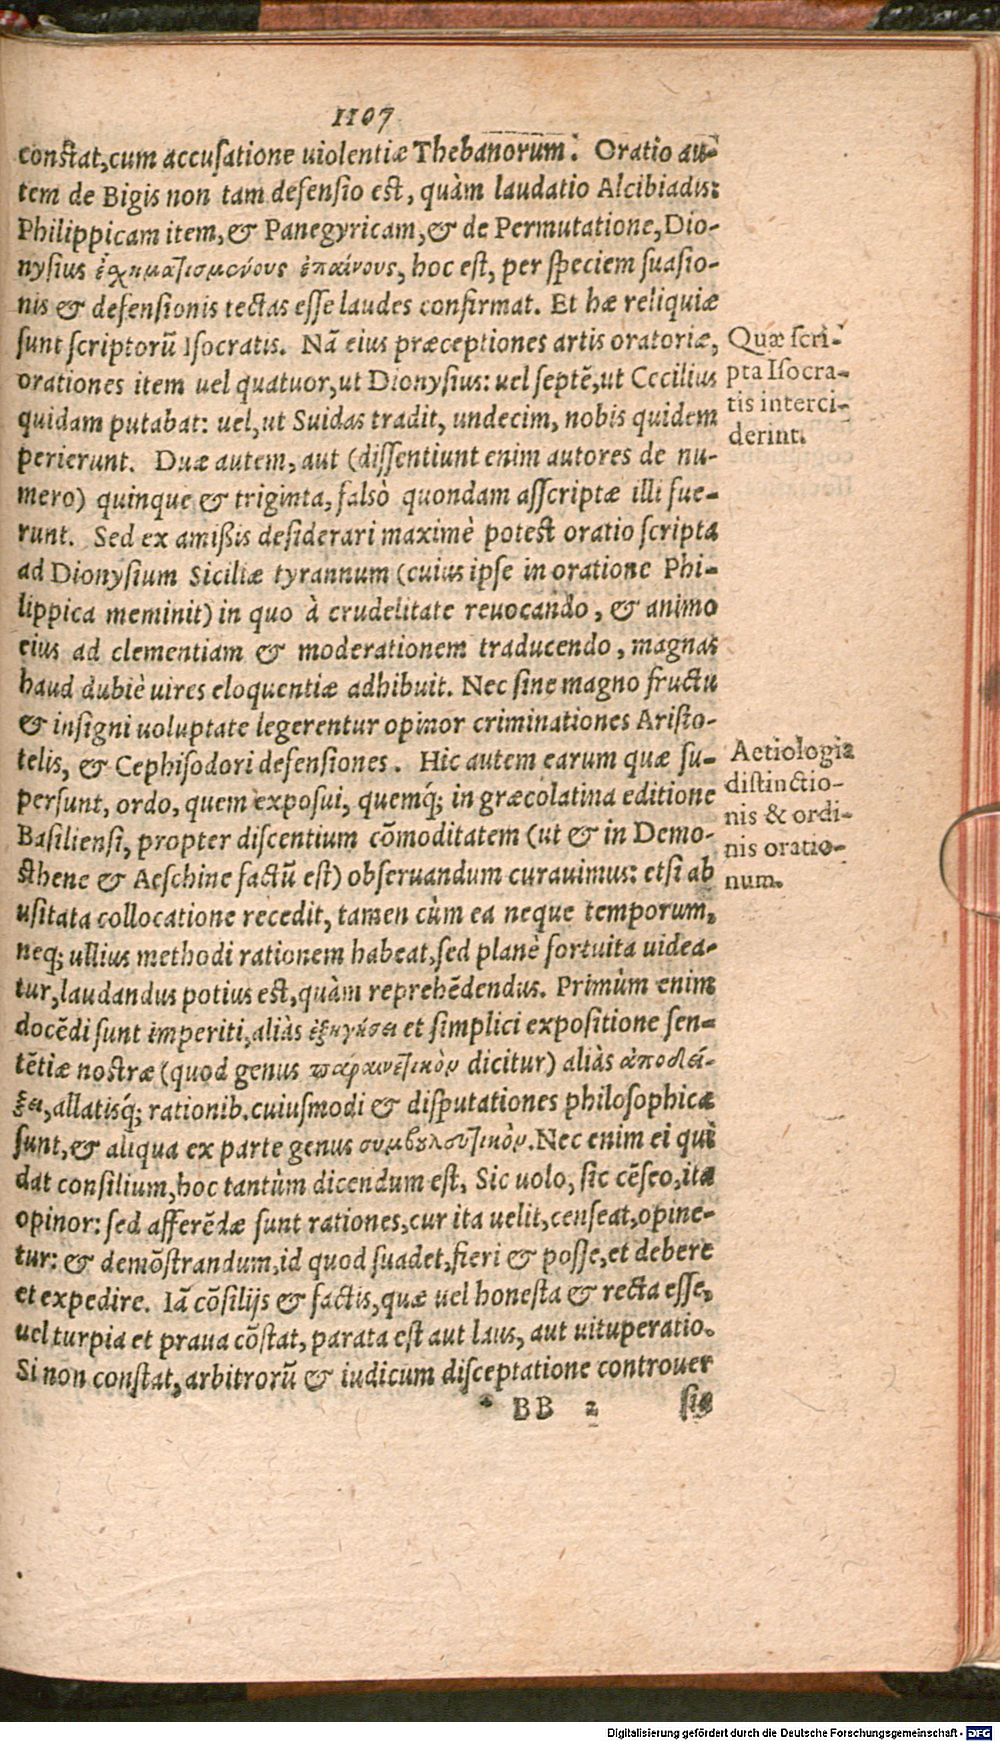 1107
constat, cum accusatione uiolentiæ Thebanorum. Oratio au-
tem de Bigis non tam defensio est, quàm laudatio Alcibiadis:
Philippicam item, & Panegyricam, & de Permutatione, Dio-
nysius ἐσχηματισμένους ἐπαίνους, hoc est, per speciem suasio-
nis & defensionis tectas esse laudes confirmat. Et hæ reliquiæ
sunt scriptorũ Isocratis. Nã eius præceptiones artis oratoriæ,
orationes item uel quatuor, ut Dionysius: uel septẽ, ut Cecilius
quidam putabat: uel, ut Suidas tradit, undecim, nobis quidem
perierunt. Duæ autem, aut (dissentiunt enim autores de nu-
mero) quinque & triginta, falsò quondam asscriptæ illi fue-
runt. Sed ex amißis desiderari maximè potest oratio scripta
ad Dionysium Siciliæ tyrannum (cuius ipse in oratione Phi-
lippica meminit) in quo à crudelitate reuocando, & animo
eius ad clementiam & moderationem traducendo, magnas
haud dubiè uires eloquentiæ adhibuit. Nec sine magno fructu
& insigni uoluptate legerentur opinor criminationes Aristo-
telis, & Cephisodori defensiones. Hic autem earum quæ su-
persunt, ordo, quem exposui, quemq́; in græcolatina editione
Basiliensi, propter discentium cõmoditatem (ut & in Demo-
sthene & Aeschine factũ est) obseruandum curauimus: etsi ab
usitata collocatione recedit, tamen cùm ea neque temporum,
neq; ullius methodi rationem habeat, sed planè fortuita uidea-
tur, laudandus potius est, quàm reprehẽdendus. Primùm enim
docẽdi sunt imperiti, aliàs ἐξηγήσει et simplici expositione sen-
tẽtiæ nostræ (quod genus παραινετικὸν dicitur) aliàs ἀποδεί-
ξει, allatisq́; rationib. cuiusmodi & disputationes philosophicæ
sunt, & aliqua ex parte genus συμβουλευτικὸν. Nec enim ei qui
dat consilium, hoc tantùm dicendum est, Sic uolo, sic cẽseo, ita
opinor: sed afferẽdæ sunt rationes, cur ita uelit, censeat, opine-
tur: & demõstrandum, id quod suadet, fieri & posse, et debere
et expedire. Iã cõsilijs & factis, quæ uel honesta & recta esse,
uel turpia et praua cõstat, parata est aut laus, aut uituperatio.
Si non constat, arbitrorũ & iudicum disceptatione controuer
* BB 2 siæ
Quæ scri-
pta Isocra-
tis interci-
derint.
Aetiologia
distinctio-
nis & ordi-
nis oratio-
num.
Digitalisierung gefördert durch die Deutsche Forschungsgemeinschaft - DFG